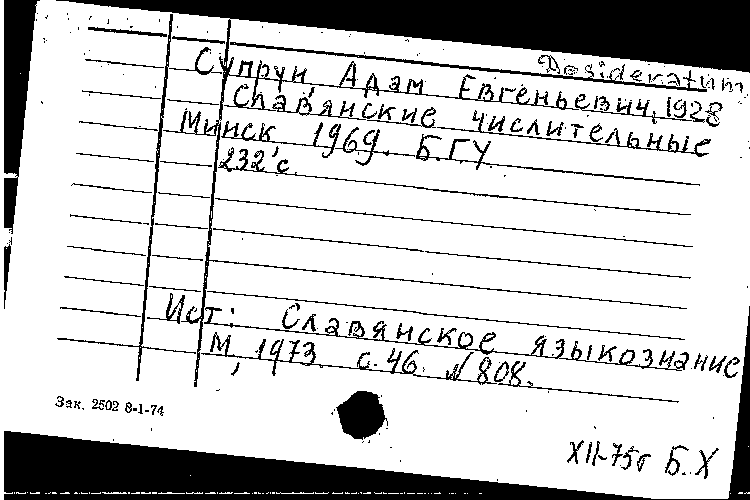 Desideratum
Супрун, Адам Евгеньевич, 1928
Славянские числительные
Минск, 1969. БГУ
232 с.
Ист: Славянское языкознание
М, 1973. с. 46. № 808.
Зак. 2502 8-1-74
XII-75г Б.Х